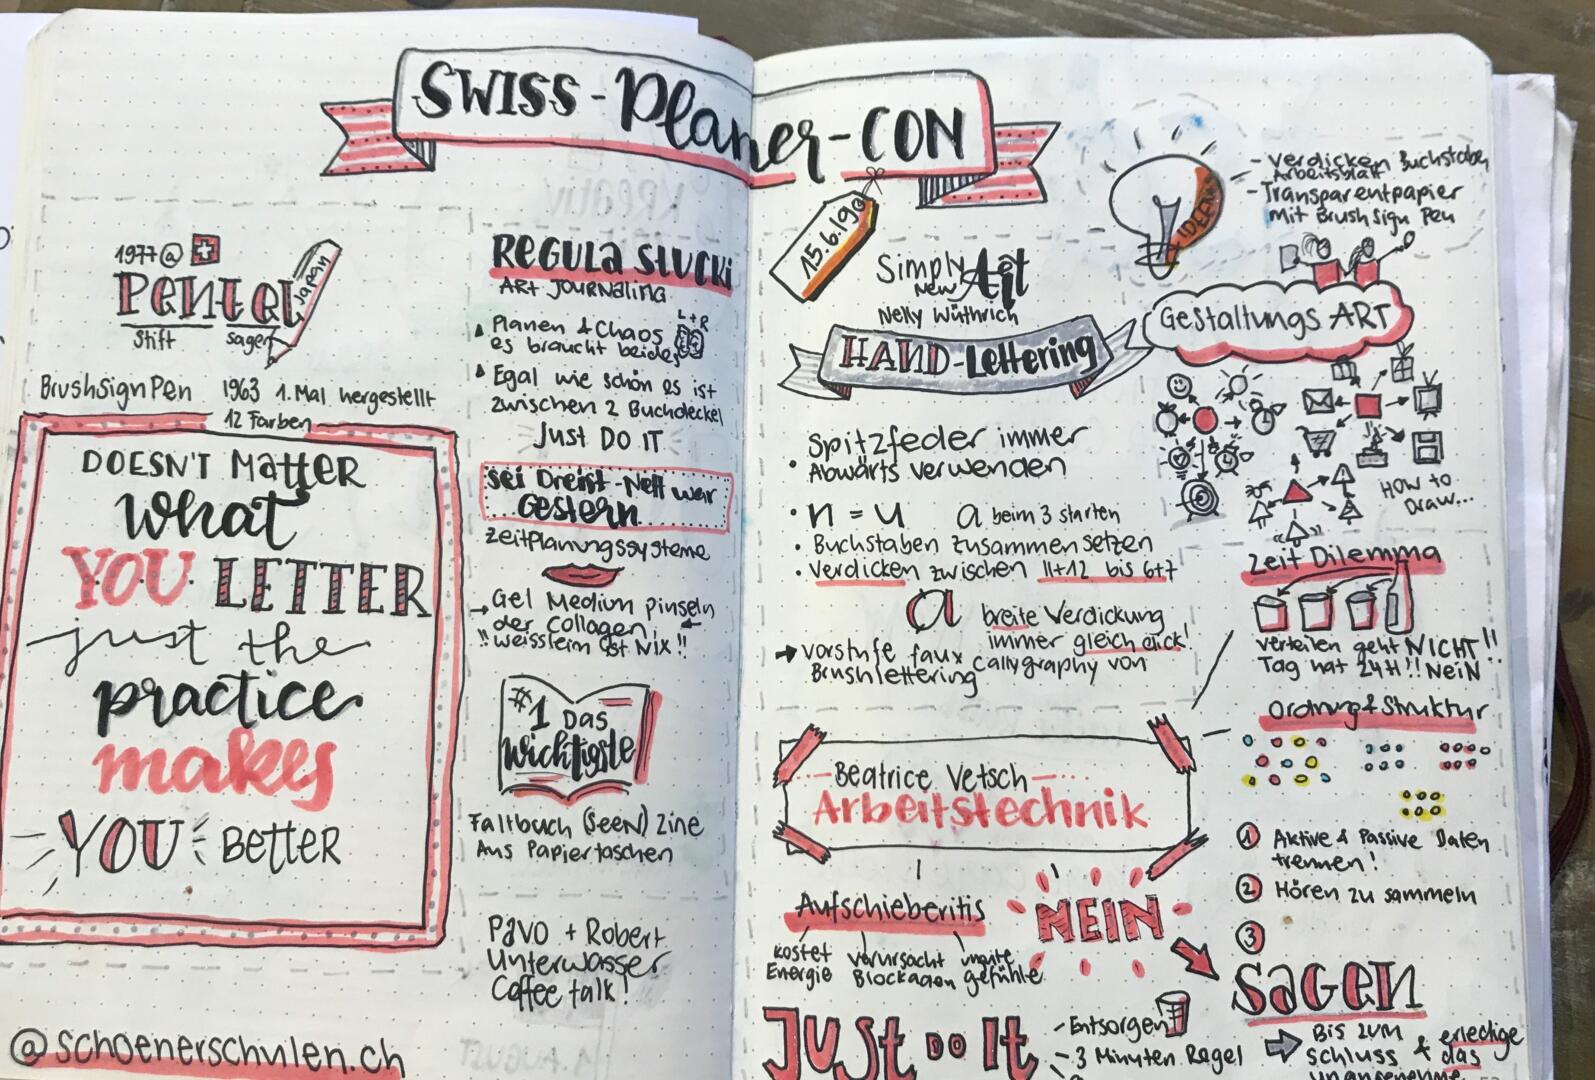 SWISS-Planer-CON
15.6.19
1977@
Pentel
Japan
Stift sagen
BrushSignPen 1963 1. Mal hergestellt
12 Farben
DOESN'T Matter
what
YOU LETTER
just the
practice
makes
YOU Better
@schoenerschulen.ch
REGULA STUCKI
ART JOURNaling
L+R
Planen & Chaos
es braucht beides
Egal wie schön es ist
zwischen 2 Buchdeckel
Just DO IT
Sei Dreist-Nett war
Gestern
Zeitplanungssysteme
→ Gel Medium pinseln
der Collagen ←
!! weissleim ist Nix !!
#1 Das
Wichtigste
Faltbuch (SeeN) Zine
Aus Papiertaschen
Pavo + Robert
Unterwasser
Coffee talk!
Simply Art
New
Nelly Wüthrich
HAND-Lettering
Spitzfeder immer
Abwärts verwenden
• n = u a beim 3 starten
• Buchstaben zusammensetzen
• Verdicken zwischen 11+12 bis 6+7
a breite Verdickung
immer gleich dick!
→ Vorstufe faux Callygraphy von
Brushlettering
IDEEN
- Verdicken Buchstaben
Arbeitsblatt
- Transparentpapier
mit Brush Sign Pen
Gestaltungs ART
HOW to
Draw...
Zeit Dilemma
Verteilen geht NICHT!!
Tag hat 24H!! NeiN
Ordnung & Struktur
① Aktive & Passive Daten
trennen!
② Hören zu sammeln
③
Beatrice Vetsch
Arbeitstechnik
Aufschieberitis
kostet
Energie
verursacht
Blockaden
gefühle
NEIN
SAGEN
JUSt DO It
- Entsorgen
- 3 Minuten Regel
⇒ Bis zum
schluss & erledige
das
unangenehme